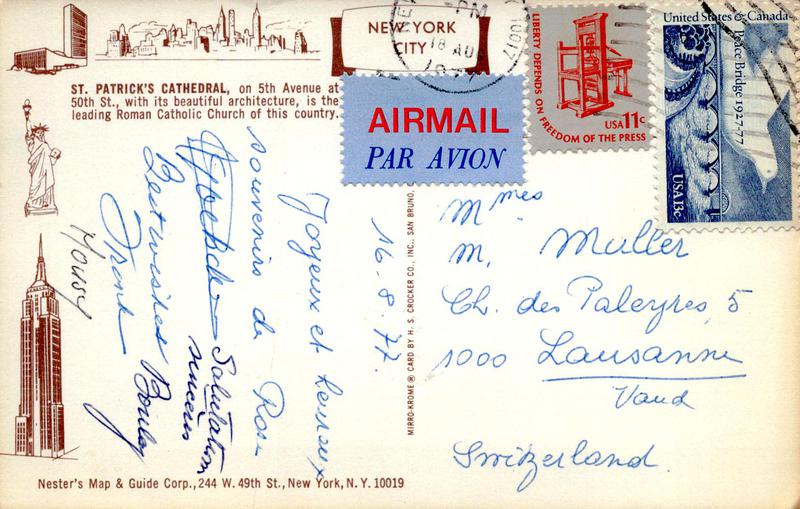 NEW YORK
CITY
PM
18 AUG
10017
ST. PATRICK'S CATHEDRAL, on 5th Avenue at
50th St., with its beautiful architecture, is the
leading Roman Catholic Church of this country.
AIRMAIL
PAR AVION
LIBERTY DEPENDS ON FREEDOM OF THE PRESS
USA 11c
United States & Canada
Peace Bridge 1927-77
USA 13c
16.8.77.
Joyeux et heureux
souvenirs de Rose
Salutation
sincères
Best wishes
Frank
MIRRO-KROME® CARD BY H. S. CROCKER CO., INC., SAN BRUNO, C
Mmes
M. Muller
Ch. des Paleyres 5
1000 Lausanne
Vaud
Switzerland.
Nester's Map & Guide Corp., 244 W. 49th St., New York, N.Y. 10019